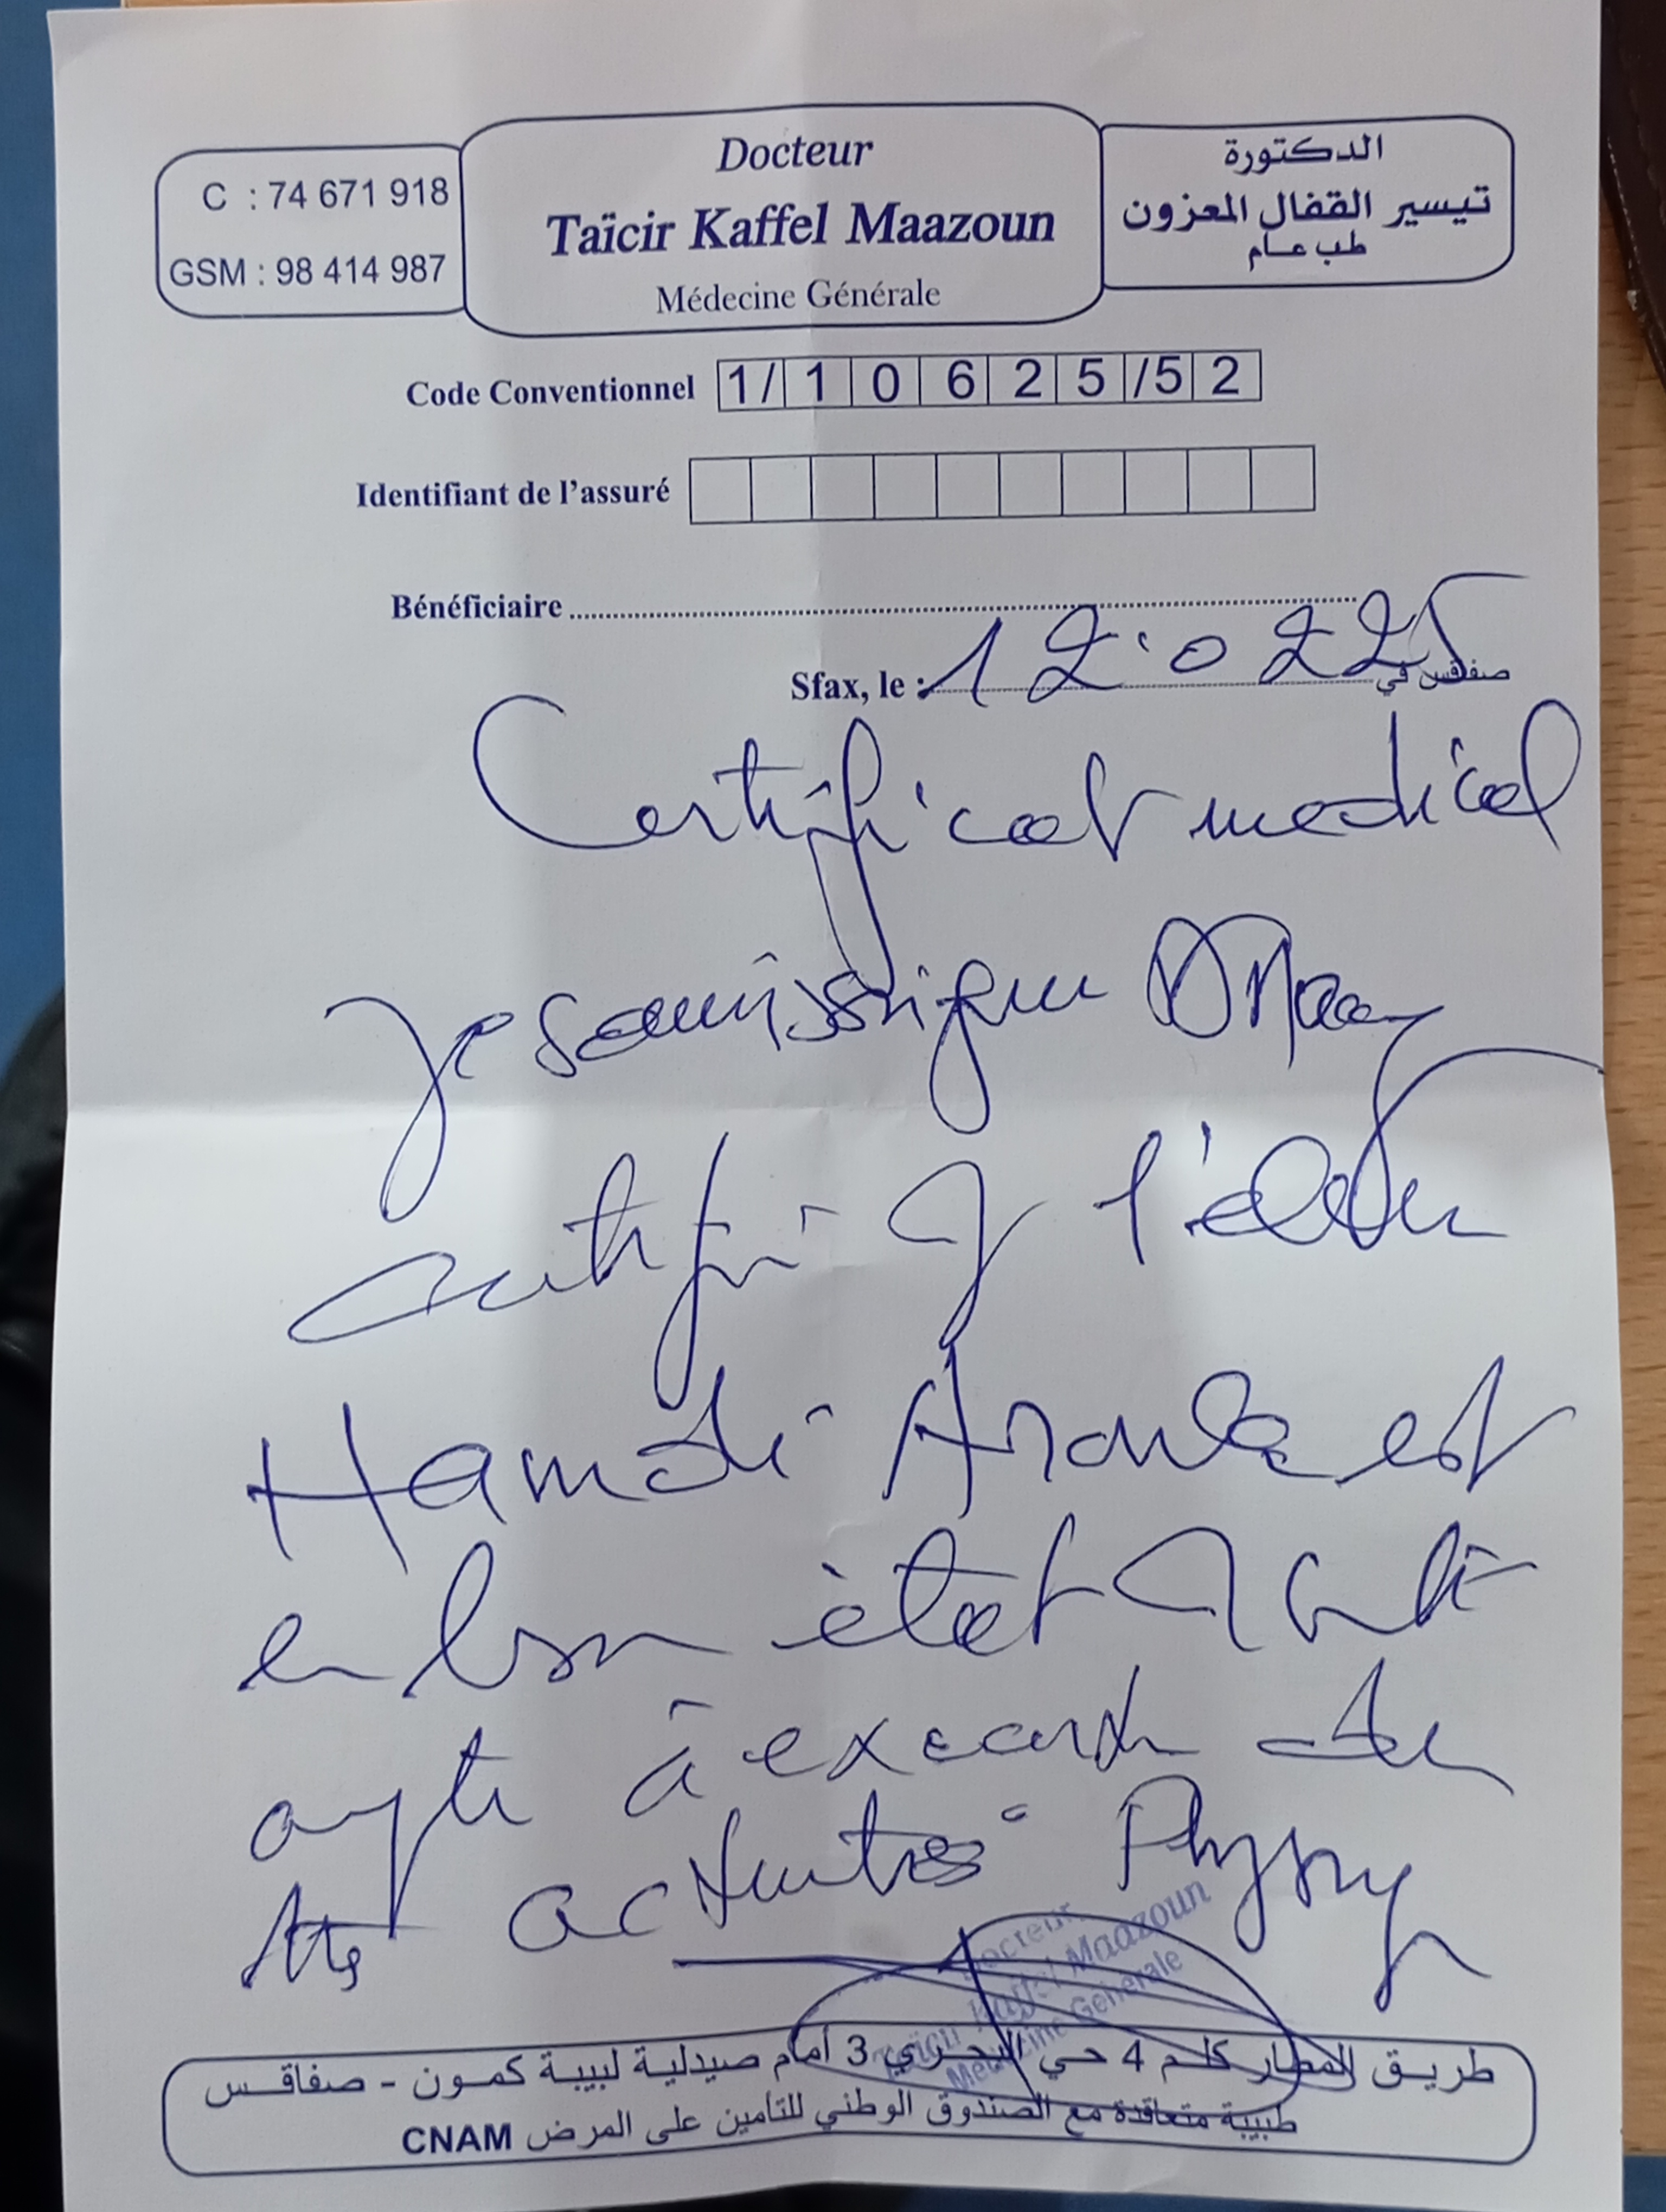 C : 74 671 918
GSM : 98 414 987
Docteur
Taïcir Kaffel Maazoun
Médecine Générale
الدكتورة
تيسير القفال المعزون
طب عام
Code Conventionnel 1/10625/52
Identifiant de l'assuré
Bénéficiaire
Sfax, le : 12.02 25 صفاقس في
Certificat medical
Je soussigné Dr Maaz
certifie q l'élève
Hamdi est
en bon état santé
apte à executer des
activités Physiq
Docteur
Taïcir Kaffel Maazoun
Médecine Générale
طريق المطار كلم 4 حي البحري 3 أمام صيدلية لبيبة كمون - صفاقس
طبيبة متعاقدة مع الصندوق الوطني للتأمين على المرض CNAM